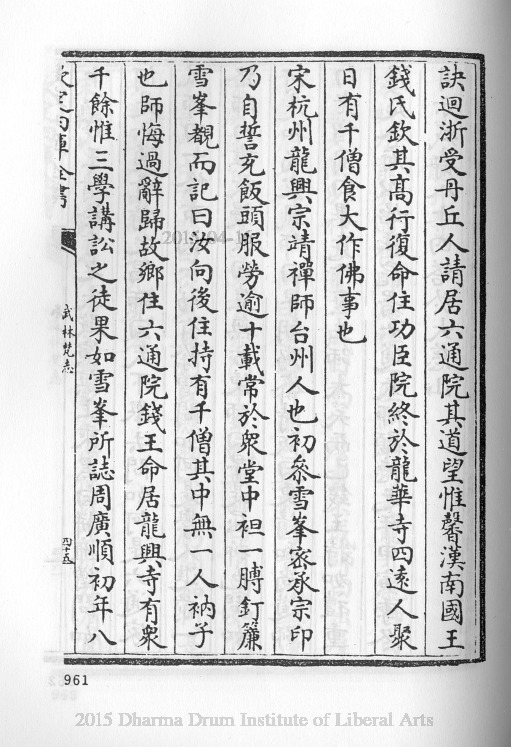 訣迴浙受丹丘人請居六通院其道望惟馨漢南國王
錢氏欽其高行復命住功臣院終於龍華寺四遠人聚
日有千僧食大作佛事也
宋杭州龍興宗靖禪師台州人也初叅雪峯宻承宗印
乃自誓充飯頭服勞逾十載常於衆堂中袒一膊釘簾
雪峯覩而記曰汝向後住持有千僧其中無一人衲子
也師悔過辭歸故鄉住六通院錢王命居龍興寺有衆
千餘惟三學講訟之徒果如雪峯所誌周廣順初年八
欽定四庫全書
武林梵志
四十五
961
2015 Dharma Drum Institute of Liberal Arts